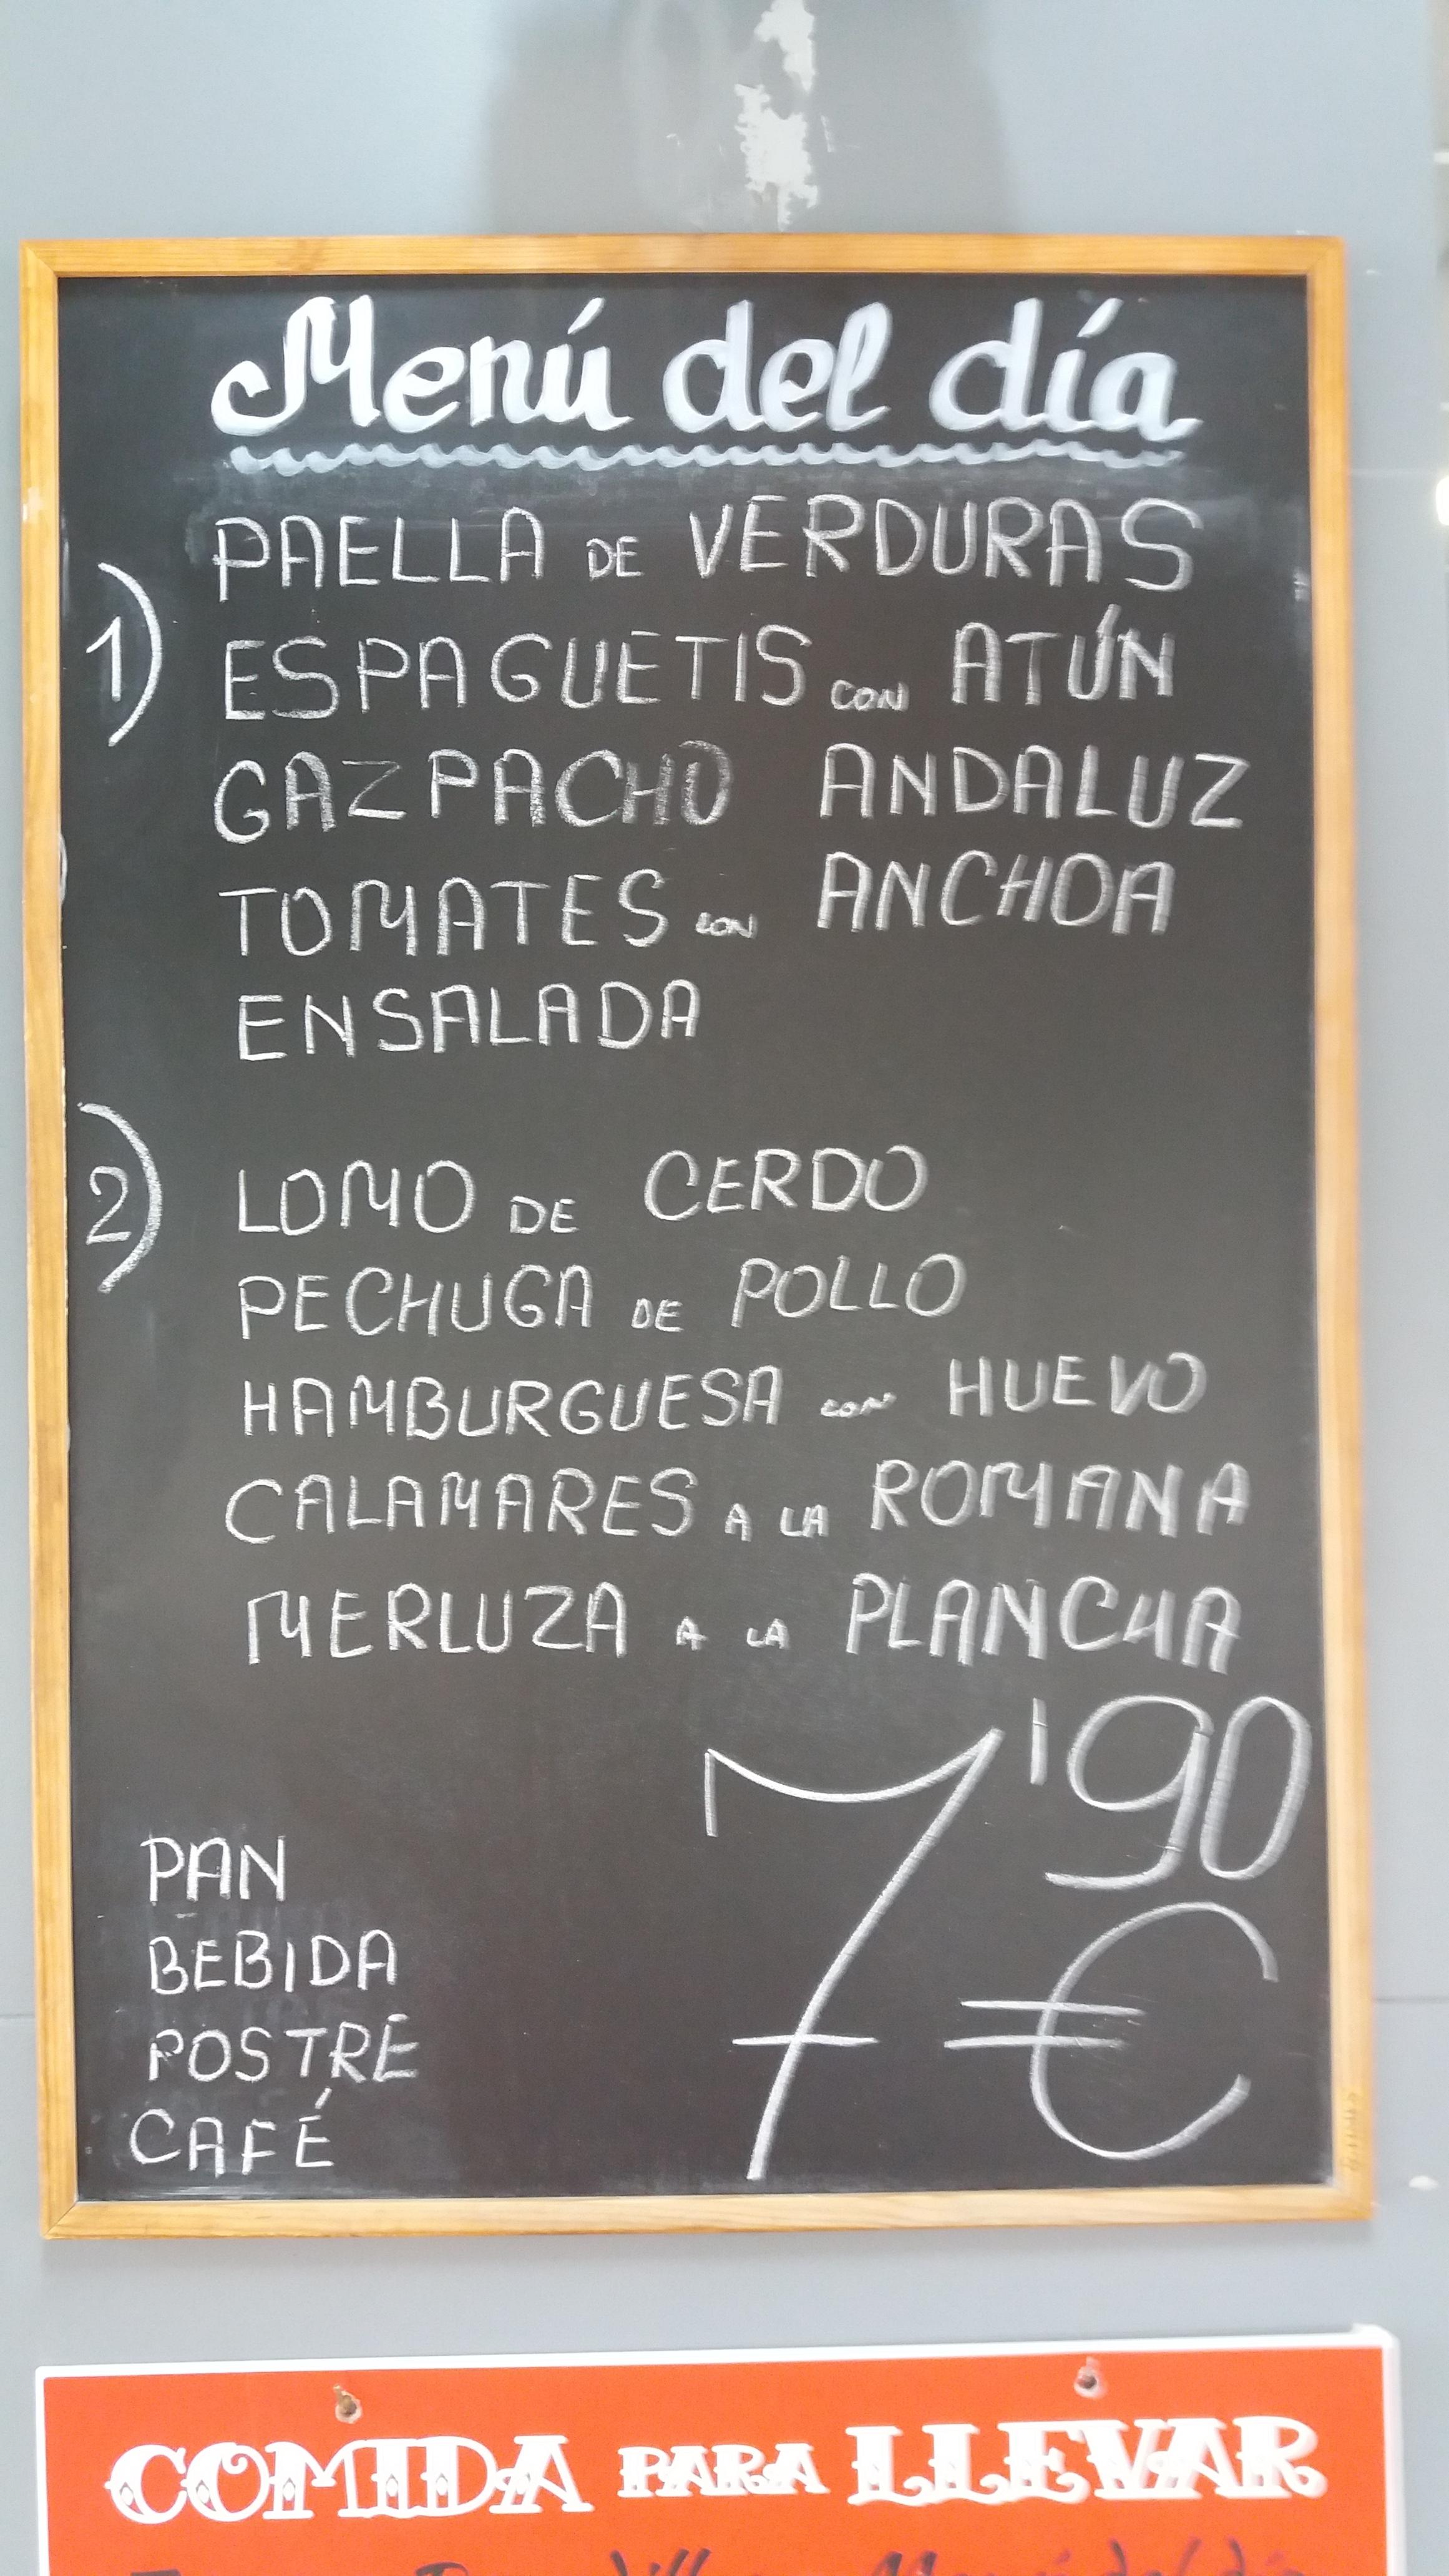 Menú del día
PAELLA DE VERDURAS
1)
ESPAGUETIS CON ATÚN
GAZPACHO ANDALUZ
TOMATES CON ANCHOA
ENSALADA
2) LOMO DE CERDO
PECHUGA DE POLLO
HAMBURGUESA CON HUEVO
CALAMARES A LA ROMANA
MERLUZA A LA PLANCHA
7'90 €
PAN
BEBIDA
POSTRE
CAFÉ
COMIDA PARA LLEVAR